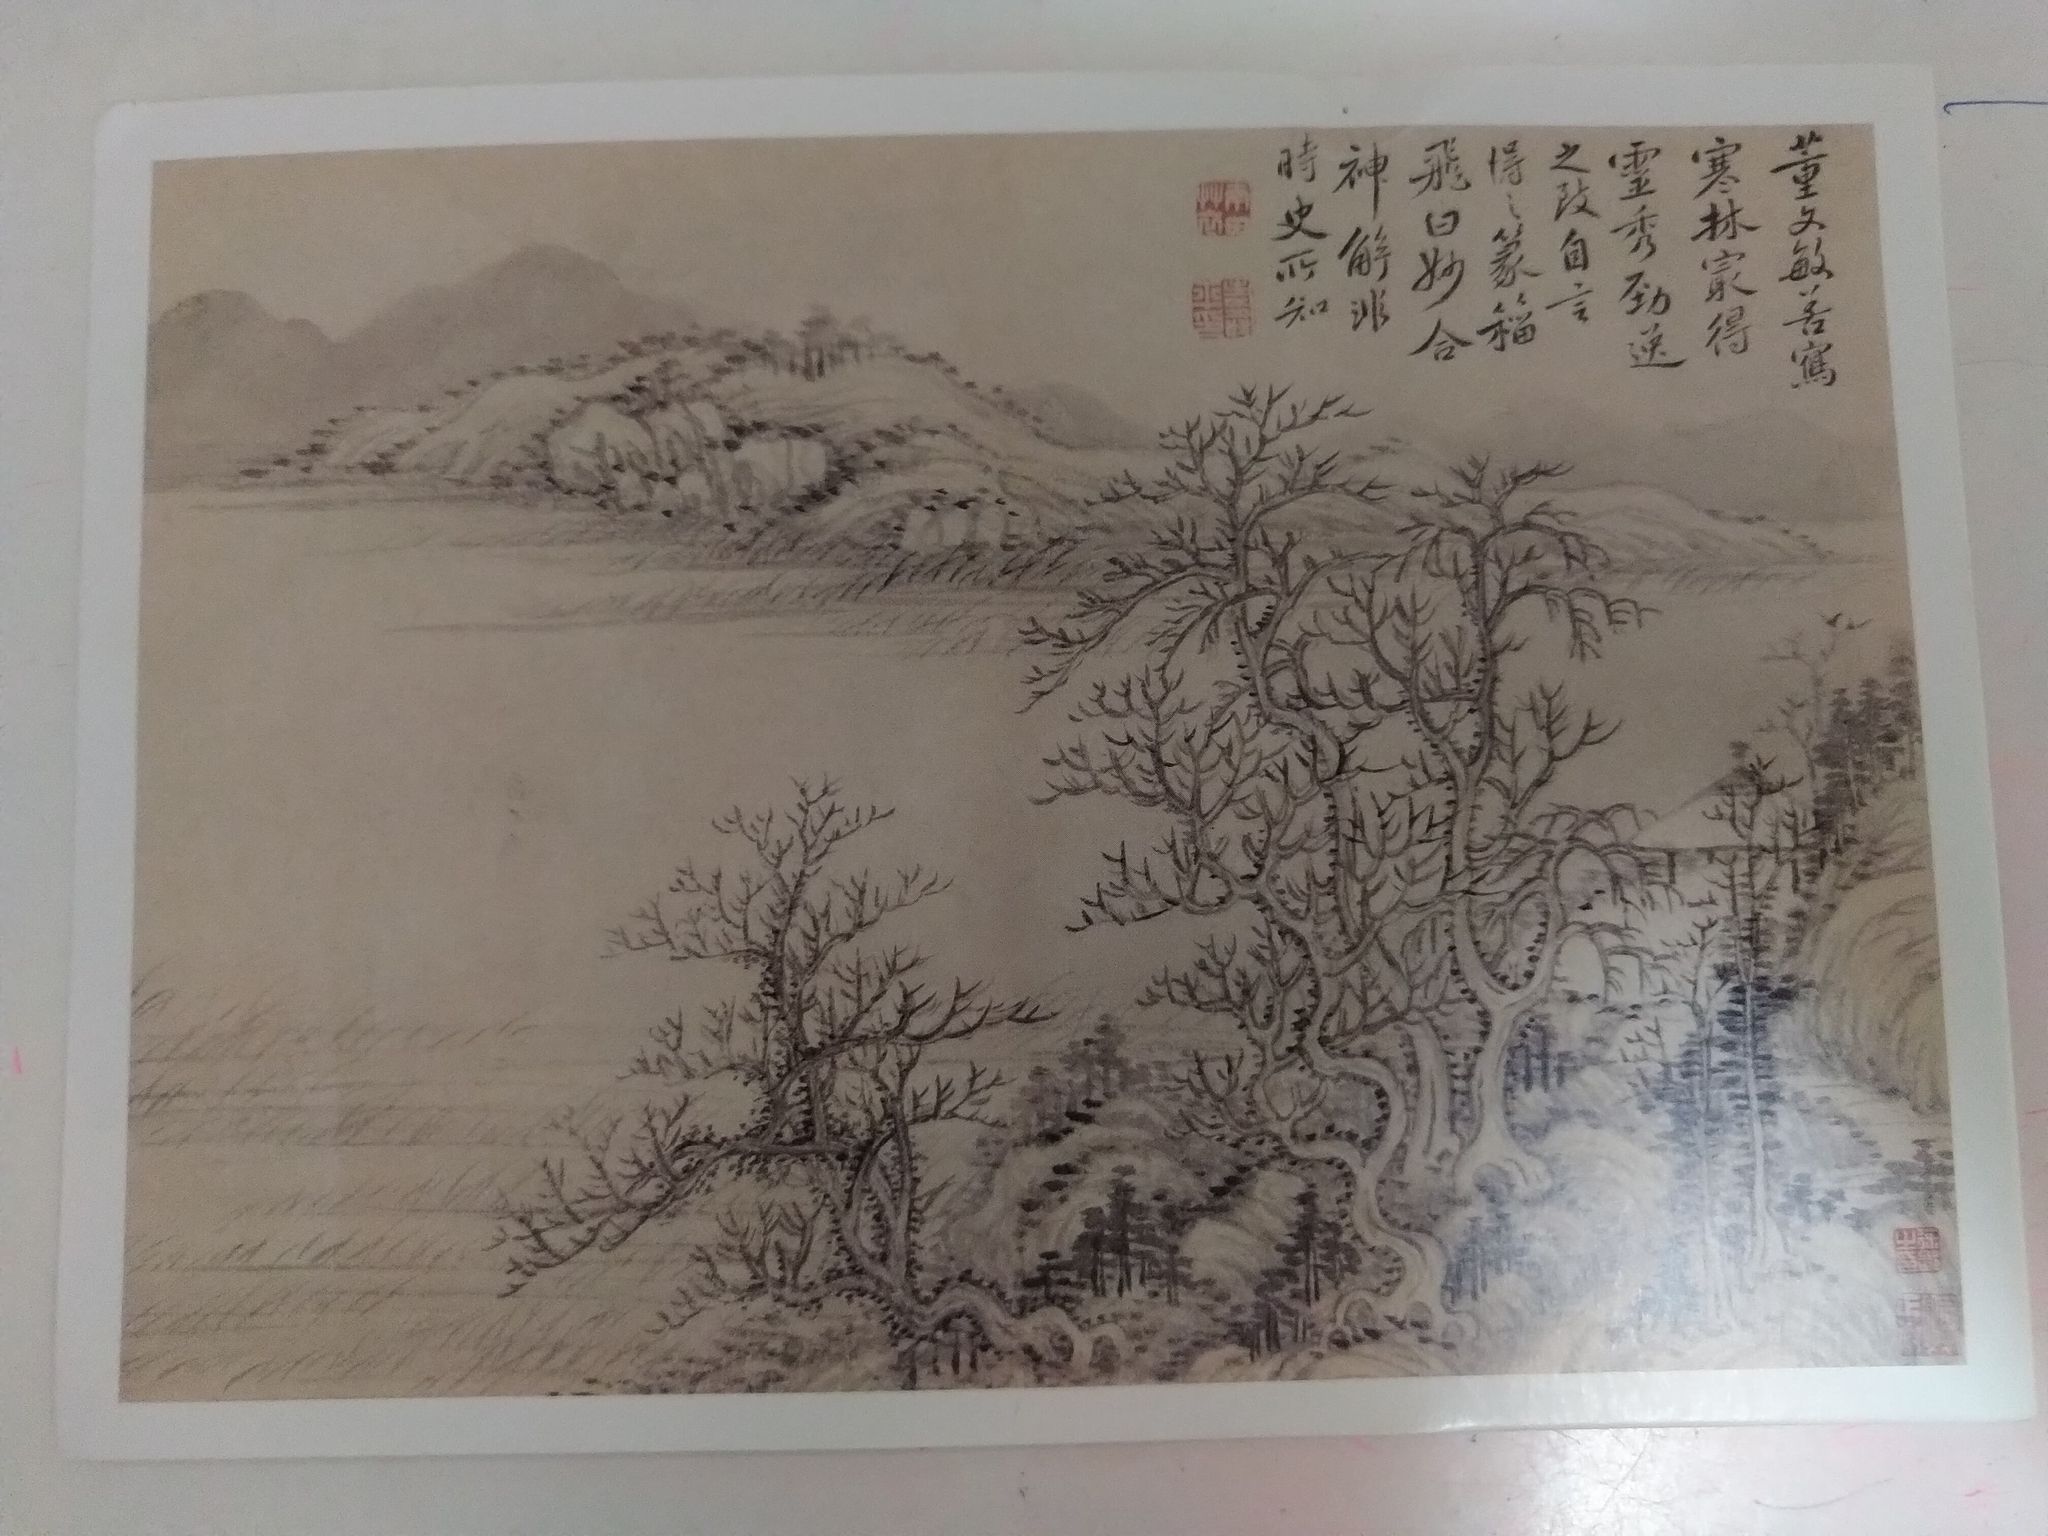 董文敏善寫
寒林寂得
靈秀勁逸
之致自言
得之篆籀
飛白妙合
神解非
時史所知